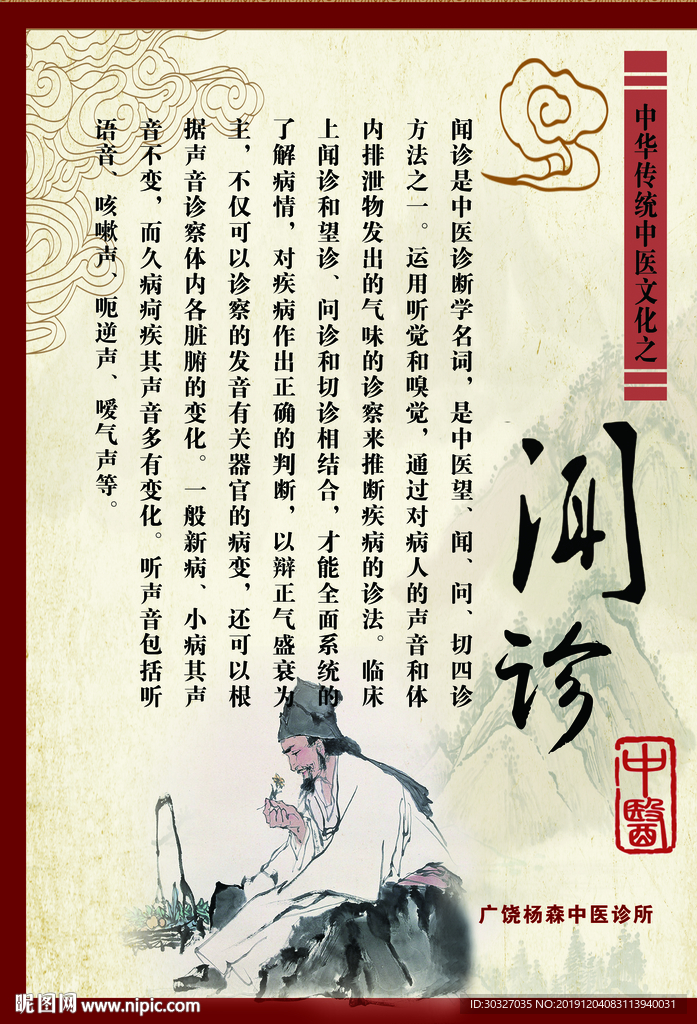 中华传统中医文化之
闻诊
中醫
闻诊是中医诊断学名词，是中医望、闻、问、切四诊
方法之一。运用听觉和嗅觉，通过对病人的声音和体
内排泄物发出的气味的诊察来推断疾病的诊法。临床
上闻诊和望诊、问诊和切诊相结合，才能全面系统的
了解病情，对疾病作出正确的判断，以辩正气盛衰为
主，不仅可以诊察的发音有关器官的病变，还可以根
据声音诊察体内各脏腑的变化。一般新病、小病其声
音不变，而久病疴疾其声音多有变化。听声音包括听
语音、咳嗽声、呃逆声、嗳气声等。
广饶杨森中医诊所
昵图网 www.nipic.com
ID:30327035 NO:20191204083113940031